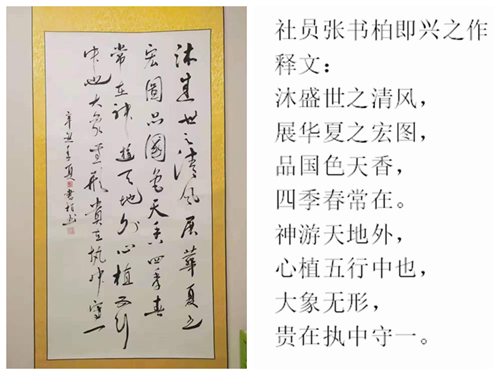 沐盛世之清風展華夏之
宏圖品國色天香四季春
常在神遊天地外心植五行
中也大象無形貴在執中守一
辛丑年夏書柏書
社员张书柏即兴之作
释文：
沐盛世之清风，
展华夏之宏图，
品国色天香，
四季春常在。
神游天地外，
心植五行中也，
大象无形，
贵在执中守一。